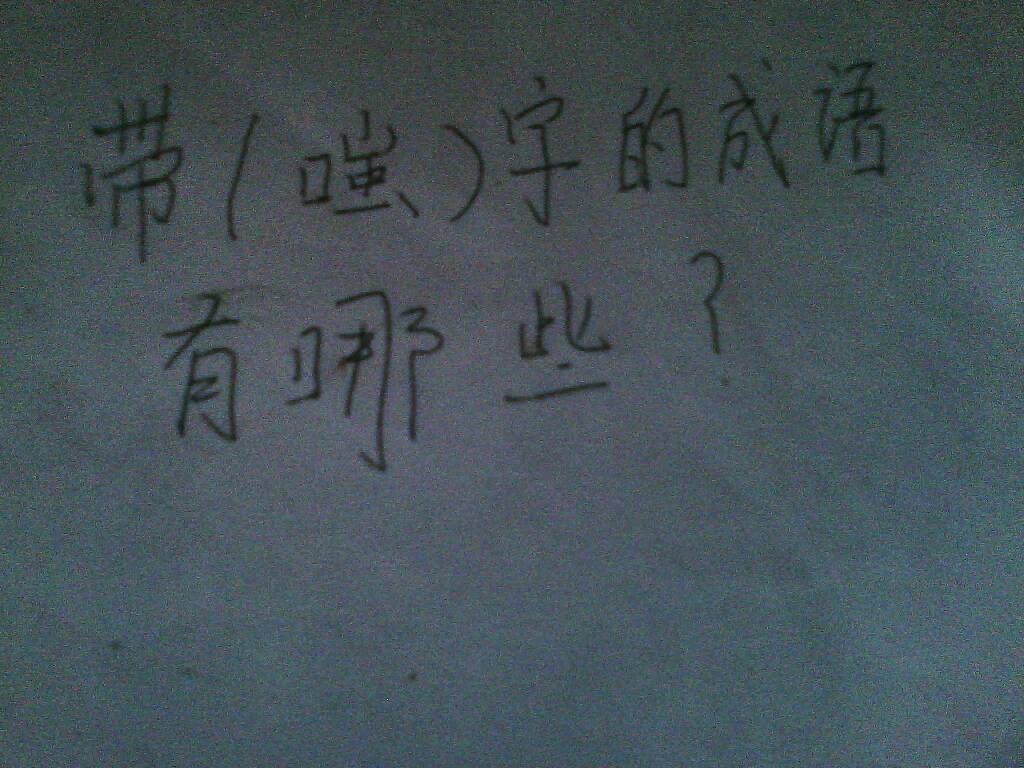 带(嗤)字的成语
有哪些?